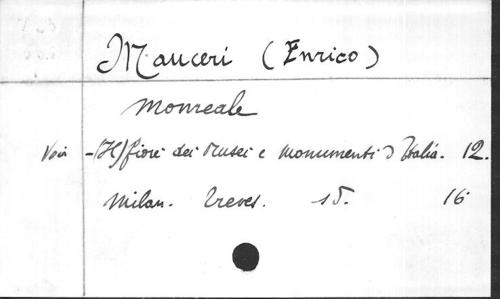 Mauceri (Enrico)
Monreale
Voir - (Il) fiore dei Musei e monumenti d'Italia. 12.
Milan. Treves. sd. 16